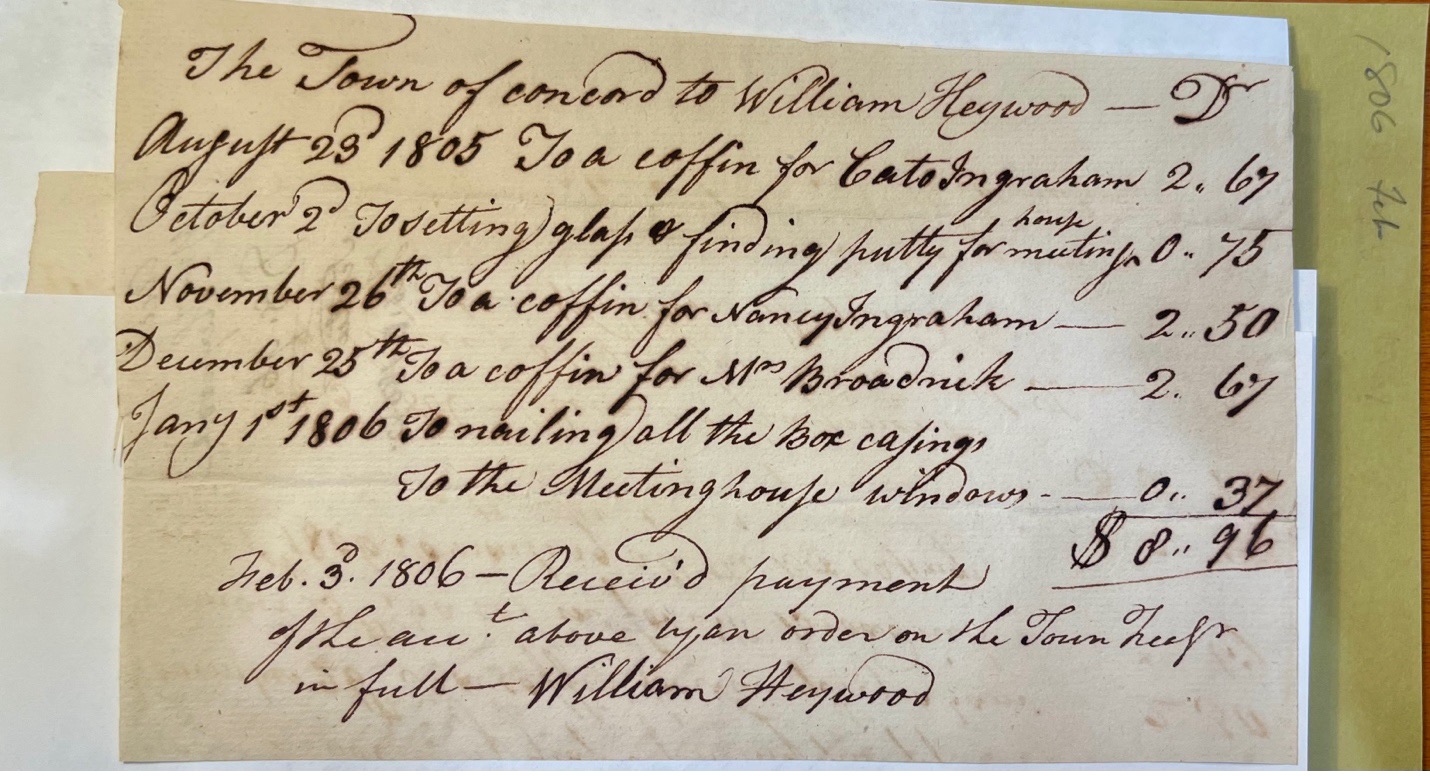 The Town of concord to William Heywood — Dr
August 23d 1805 To a coffin for Cato Ingraham 2,, 67
October 2d To setting glass & finding putty for meeting house 0,, 75
November 26th To a coffin for Nancy Ingraham — 2,, 50
December 25th To a coffin for Mrs Broadrick — 2. 67
Jany 1st 1806 To nailing all the Box casings
To the Meetinghouse windows - — 0,, 37
$ 8,, 96
Feb. 3d. 1806 — Receiv'd payment
of the acct. above by an order on the Town Treasr
in full — William Heywood
1806 Feb